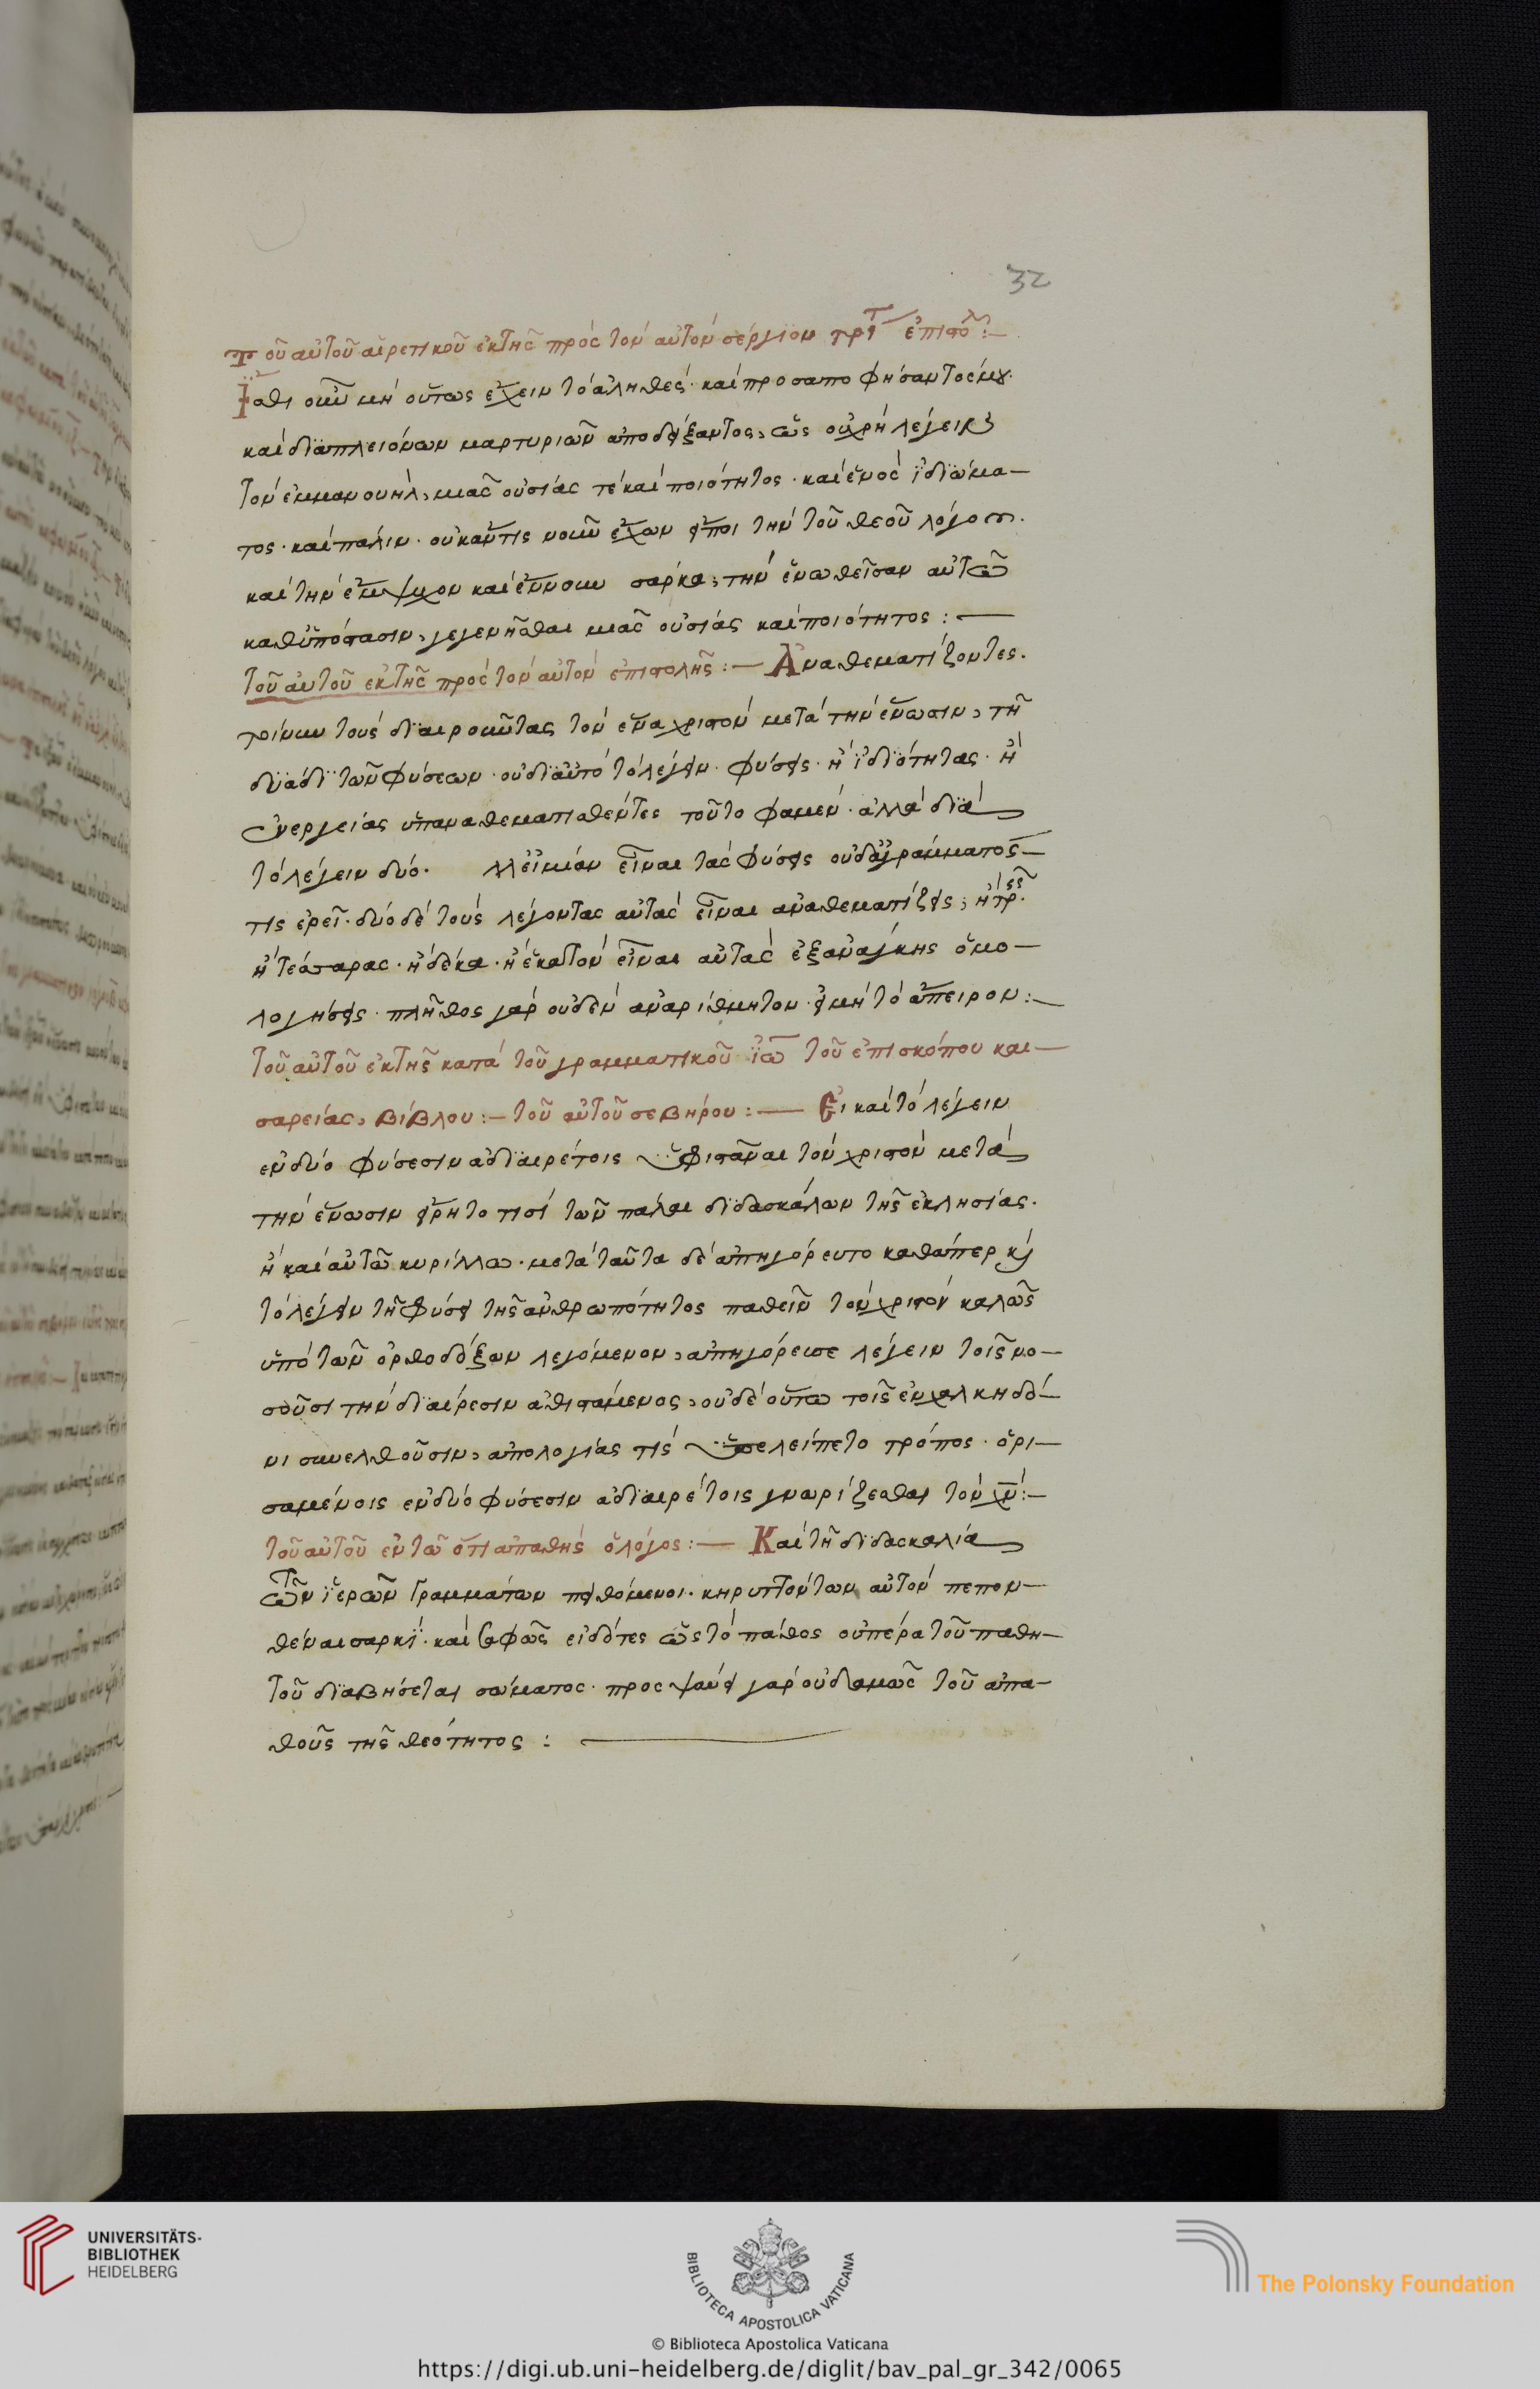 32
Τοῦ αὐτοῦ αἱρετικοῦ ἐκ τῆς πρὸς τὸν αὐτὸν σέργιον τρίτ ἐπιστολ:—
Ἴσθι οὖν μὴ οὕτως ἔχειν τὸ ἀληθές· καὶ προσαποφήσαντός μου·
καὶ διὰ πλειόνων μαρτυριῶν ἀποδείξαντος, ὡς οὐ χρὴ λέγειν
τὸν ἐμμανουήλ, μιᾶς οὐσίας τὲ καὶ ποιότητος· καὶ ἑνὸς ἰδιώμα—
τος· καὶ πάλιν· οὐκ ἄν τις νοῦν ἔχων εἴποι τὴν τοῦ θεοῦ λόγον·
καὶ τὴν ἔμψυχον καὶ ἔννουν σάρκα, τὴν ἑνωθεῖσαν αὐτῶ
καθ ὑπόστασιν, γεγενῆσθαι μιᾶς οὐσίας καὶ ποιότητος:—
τοῦ αὐτοῦ ἐκ τῆς πρὸς τὸν αὐτὸν ἐπιστολῆς:— Ἀναθεματίζοντες·
τοίνυν τοὺς διαιροῦντας τὸν ἕνα χριστὸν μετὰ τὴν ἕνωσιν, τῆ
δυάδι τῶν φύσεων· οὐ δι αὐτὸ τὸ λέγειν· φύσεις· ἢ ἰδιότητας· ἢ
ἐνεργείας ὑπαναθεματισθέντες τοῦτο φαμεν· ἀλλὰ διὰ
τὸ λέγειν δύο· λλεἰ μίαν εἶναι τὰς φύσεις οὐδ ἀγράμματος—
τις ἐρεῖ· δύο δὲ τοὺς λέγοντας αὐτὰς εἶναι ἀναθεματίζεις, ἢ τρεῖς·
ἢ τέσσαρας· ἢ δέκα· ἢ ἑκατὸν εἶναι αὐτὰς ἐξ ἀνάγκης ὁμο—
λογήσεις· πλῆθος γὰρ οὐδὲν ἀναρίθμητον· εἰ μὴ τὸ ἄπειρον:—
τοῦ αὐτοῦ ἐκ τῆς κατὰ τοῦ γραμματικοῦ ἰω τοῦ ἐπισκόπου και—
σαρείας, βίβλου:— τοῦ αὐτοῦ σεβήρου:— Εἰ καὶ τὸ λέγειν
ἐν δύο φύσεσιν ἀδιαιρέτοις ὑφιστᾶναι τὸν χριστὸν μετὰ
τὴν ἕνωσιν εἴρητο τισὶ τῶν πάλαι διδασκάλων τῆς ἐκλησίας·
ἢ καὶ αὐτῶ κυρίλλω· μετὰ ταῦτα δὲ ἀπηγόρευτο καθάπερ καὶ
τὸ λέγειν τῆ φύσει τῆς ἀνθρωπότητος παθεῖν τὸν χριστὸν καλῶς
ὑπὸ τῶν ὀρθοδόξων λεγόμενον, ἀπηγόρευσε λέγειν τοῖς νο—
σοῦσι τὴν διαίρεσιν ἀθιστάμενος, οὐδὲ οὕτω τοῖς ἐν χαλκηδό—
νι συνελθοῦσιν, ἀπολογίας τίς ὑπελείπετο τρόπος· ὁρι—
σαμένοις ἐν δύο φύσεσιν ἀδιαιρέτοις γνωρίζεσθαι τὸν χν:—
τοῦ αὐτοῦ ἐν τῶ ὅτι ἀπαθὴς ὁ λόγος:— Καὶ τῆ διδασκαλία
τῶν ἱερῶν γραμμάτων πειθόμενοι· κηρυττόντων αὐτὸν πεπον—
θέναι σαρκὶ· καὶ σαφῶς εἰδότες ὡς τὸ πάθος οὐ πέρα τοῦ παθη—
τοῦ διαβήσεται σώματος· προςψαύει γὰρ οὐδαμῶς τοῦ ἀπα—
θοῦς τῆς θεότητος:—
UNIVERSITÄTS-
BIBLIOTHEK
HEIDELBERG
BIBLIOTECA APOSTOLICA VATICANA
The Polonsky Foundation
© Biblioteca Apostolica Vaticana
https://digi.ub.uni-heidelberg.de/diglit/bav_pal_gr_342/0065